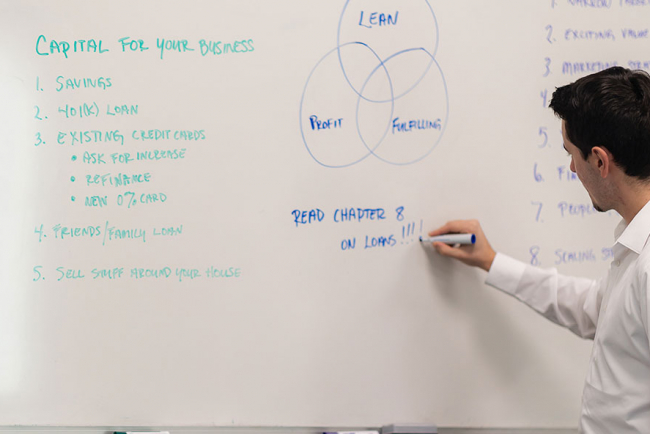 CAPITAL FOR YOUR BUSINESS
1. SAVINGS
2. 401(K) LOAN
3. EXISTING CREDIT CARDS
• ASK FOR INCREASE
• REFINANCE
• NEW 0% CARD
4. FRIENDS/FAMILY LOAN
5. SELL STUFF AROUND YOUR HOUSE
LEAN
PROFIT
FULFILLING
READ CHAPTER 8
ON LOANS!!!!
1.
2. EXCITING VALUE
3. MARKETING
5.
6.
7.
8. SCALING